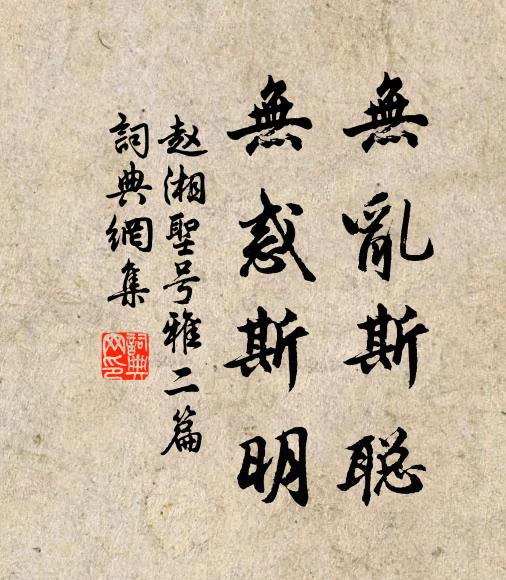 無亂斯聪
無惑斯明
赵湘聖号雅二篇
詞典網集
詞典網印